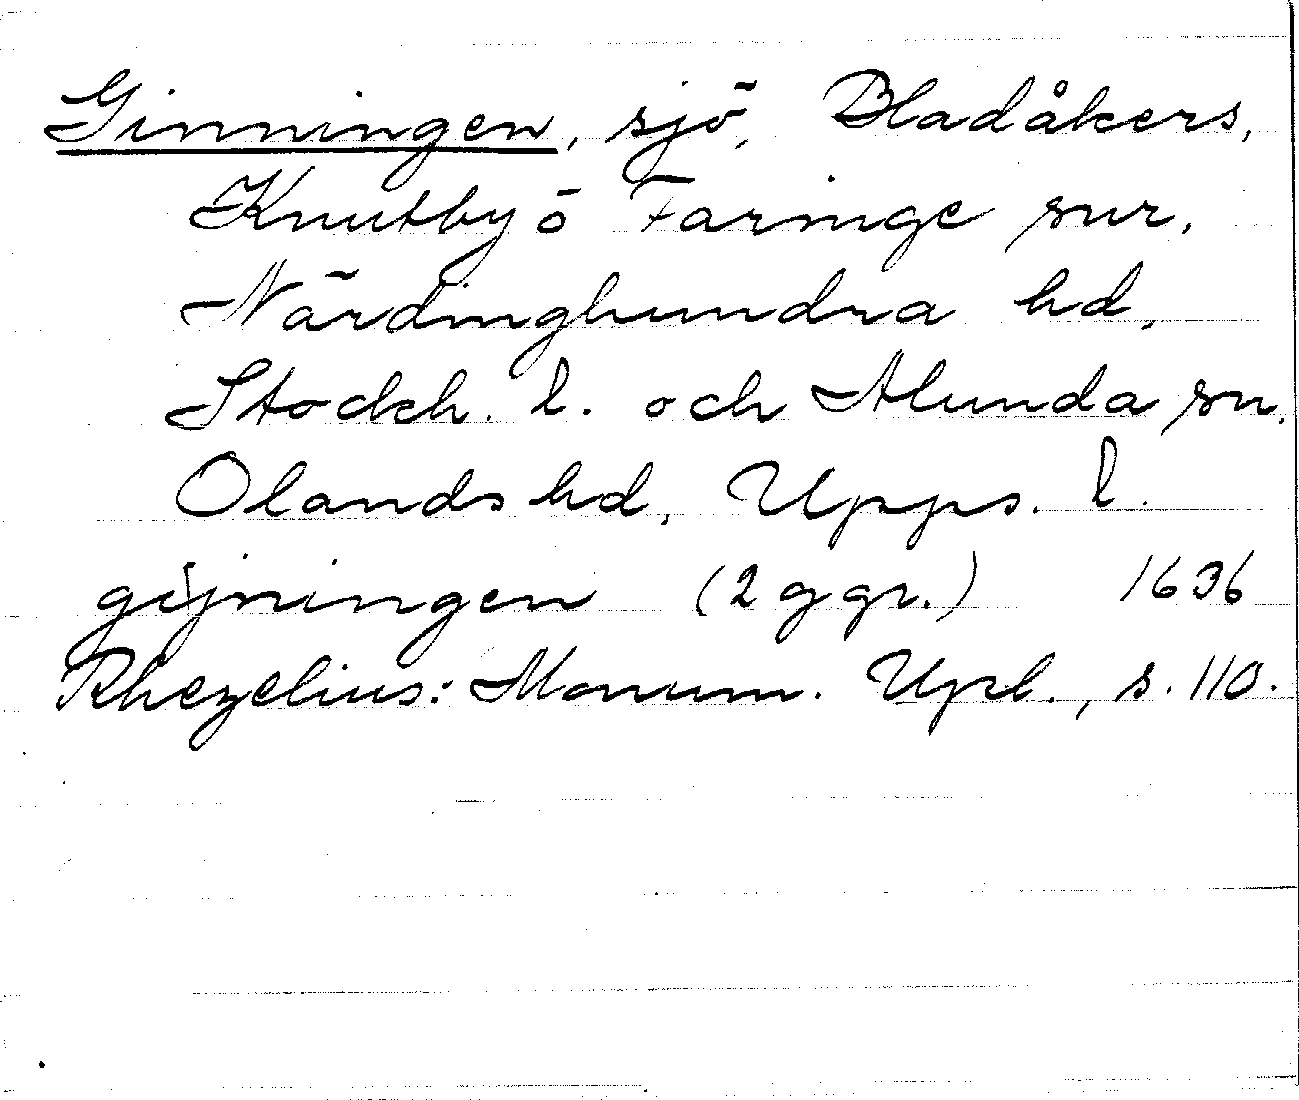 Ginningen, sjö, Bladåkers,
Knutby ö Faringe snr,
Närdinghundra hd,
Stockh. l. och Alunda sn.
Olands hd, Upps. l.
gijningen (2 ggr.) 1636
Rhezelius: Monum. Upl., s. 110.